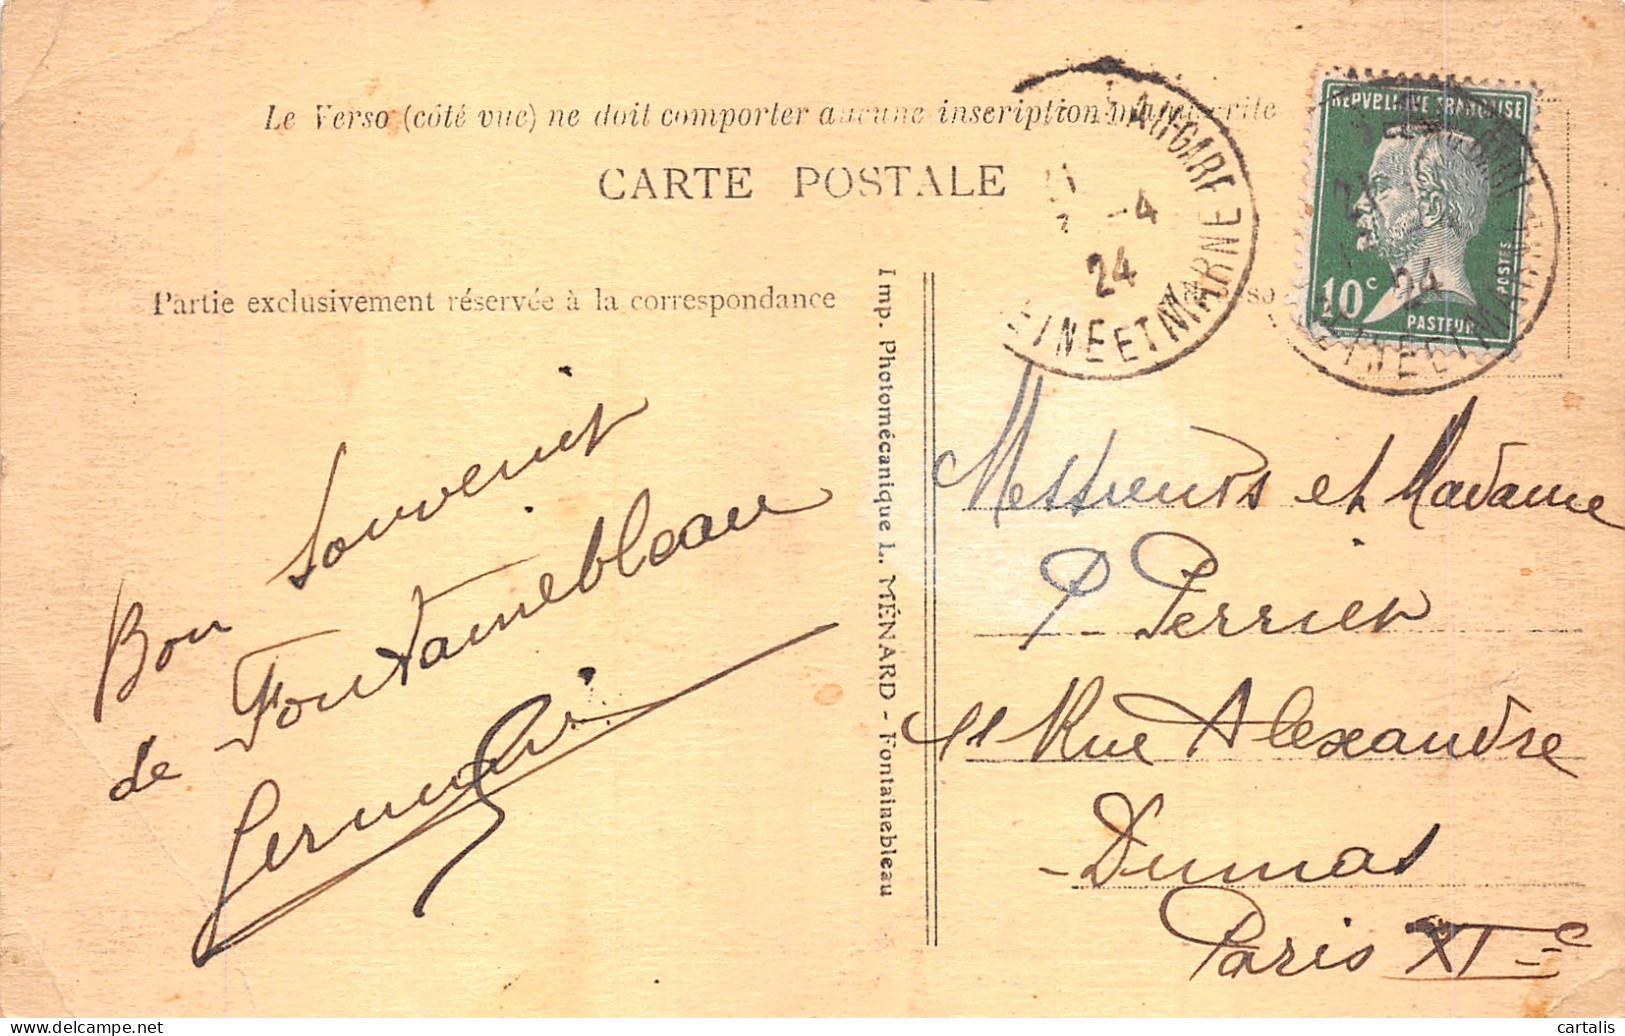 Le Verso (côté vue) ne doit comporter aucune inscription manuscrite
CARTE POSTALE
Partie exclusivement réservée à la correspondance
REPVBLIQVE FRANÇAISE
10c
POSTES
PASTEUR
-4
24
SEINE ET MARNE
24
SEINE ET MARNE
Imp. Photomécanique L. MÉNARD - Fontainebleau
Bon souvenir
de Fontainebleau
Messieurs et Madame
P. Perrier
11 Rue Alexandre
-Dumas
Paris XIe
cartalis
www.delcampe.net